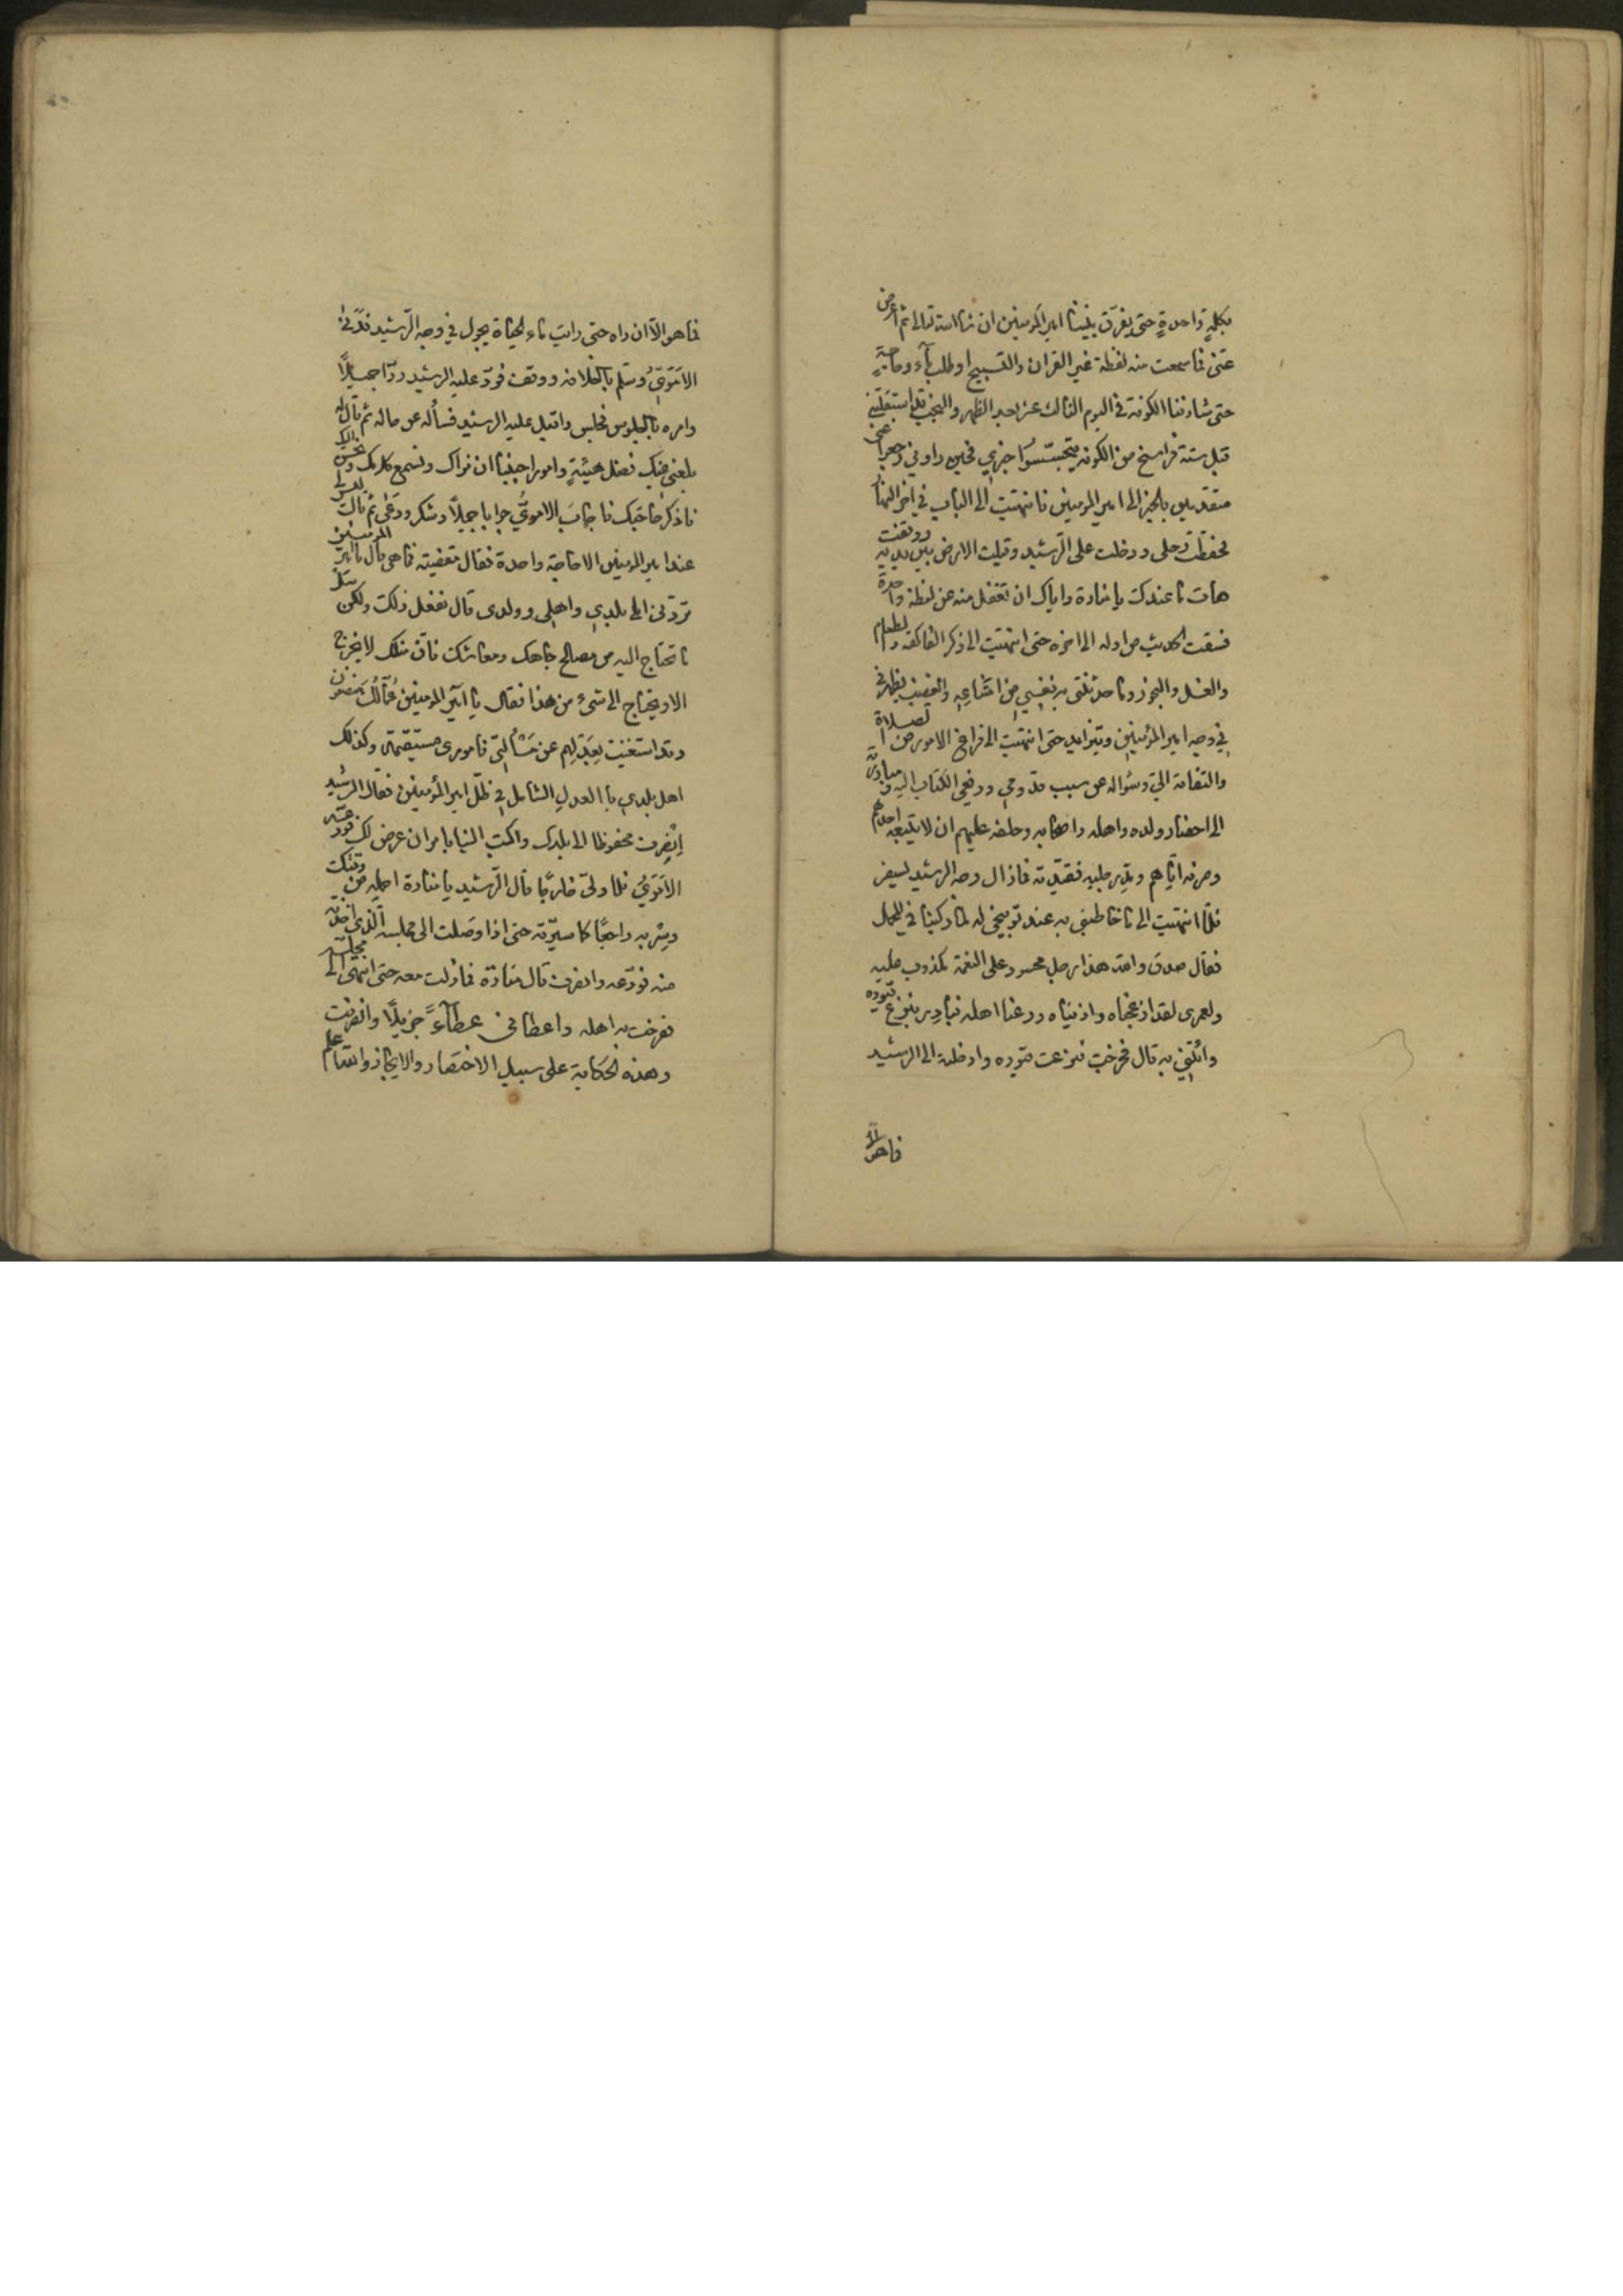 بكلمة واحدة حتى يفرق بيننا امير المومنين ان شا الله تعالى ثم اعرض
عني فما سمعت منه لفظة غير القران والتسبيح او طلب ماء وحاجة
حتى شارفنا الكوفة في اليوم الثالث عشر بعد الظهر والنجب قد استقبلتني
قبل ستة فراسخ من الكوفة يتجسسوا خبري فحين راوني رجعوا عني
متقدمين بالخبر الى امير المومنين فانتهيت الى الباب في اخر النهار
فحططت رحلي ودخلت على الرشيد وقبلت الارض بين يديه ووقفت
هات ما عندك يا منارة واياك ان تغفل منه عن لفظة واحدة
فسقت الحديث من اوله الى اخره حتى انتهيت الى ذكر الفاكهة والطعام
والغسل والبخور وما حدثتني به نفسي من امتناعه والغضب يظهر في
في وجه امير المؤمنين ويتزايد حتى انتهيت الى فراغ الاموي من الصلاة
والتفاته الي وسؤاله عن سبب قدومي ودفعي الكتاب اليه ومبادرته
الى احضار ولده واهله واصحابه وحلفه عليهم ان لا يتبعه احدهم
وصرفه اياهم ومد رجليه فقيدته فما زال وجه الرشيد يسفر
فلما انتهيت الى ما خاطبني به عند توبيخي له لما ركبنا في المحمل
فقال صدق والله هذا رجل محسود على النعمة مكذوب عليه
ولعمري لقد ازعجناه واذيناه ورعنا اهله فبادر بنزع قيوده
وائتني به قال فخرجت فنزعت قيوده وادخلته الى الرشيد
فما هو الا
فما هو الا ان راه حتى رايت ماء الحياة يجول في وجه الرشيد فدنى
الاموي وسلم بالخلافة ووقف فرد عليه الرشيد ردا جميلا
وامره بالجلوس فجلس واقبل عليه الرشيد فسأله عن حاله ثم قال له
بلغني عنك فضل هيئة وامورا احببنا ان نراك ونسمع كلامك ونحسن اليك
فاذكر حاجتك فاجاب الاموي جوابا جميلا وشكر ودعى ثم قال ليس لي
عند امير المومنين الا حاجة واحدة فقال مقضية فما هي قال يا امير المومنين
تردني الى بلدي واهلي وولدي قال نفعل ذلك ولكن سل
ما تحتاج اليه من مصالح جاهك ومعاشك فان مثلك لا يخرج
الا ويحتاج الى شيء من هذا فقال يا امير المومنين عمالك منصفون
وقد استغنيت بعدلهم عن مسألتي فاموري مستقيمة وكذلك
اهل بلدي با العدل الشامل في ظل امير المؤمنين فقال الرشيد
انصرف محفوظا الى بلدك واكتب الينا بامر ان عرض لك فودعه
الاموي فلما ولى خارجا قال الرشيد يا منارة احمله من وقتك
وسر به راجعا كما سيرته حتى اذا وصلت الى مجلسه الذي اخذته
منه فودعه وانصرف قال منارة فما زلت معه حتى انتهى الى مجلسه
ففرحت به اهله واعطاني عطآءً جزيلا وانصرفت
وهذه الحكاية على سبيل الاختصار والايجاز والله اعلم